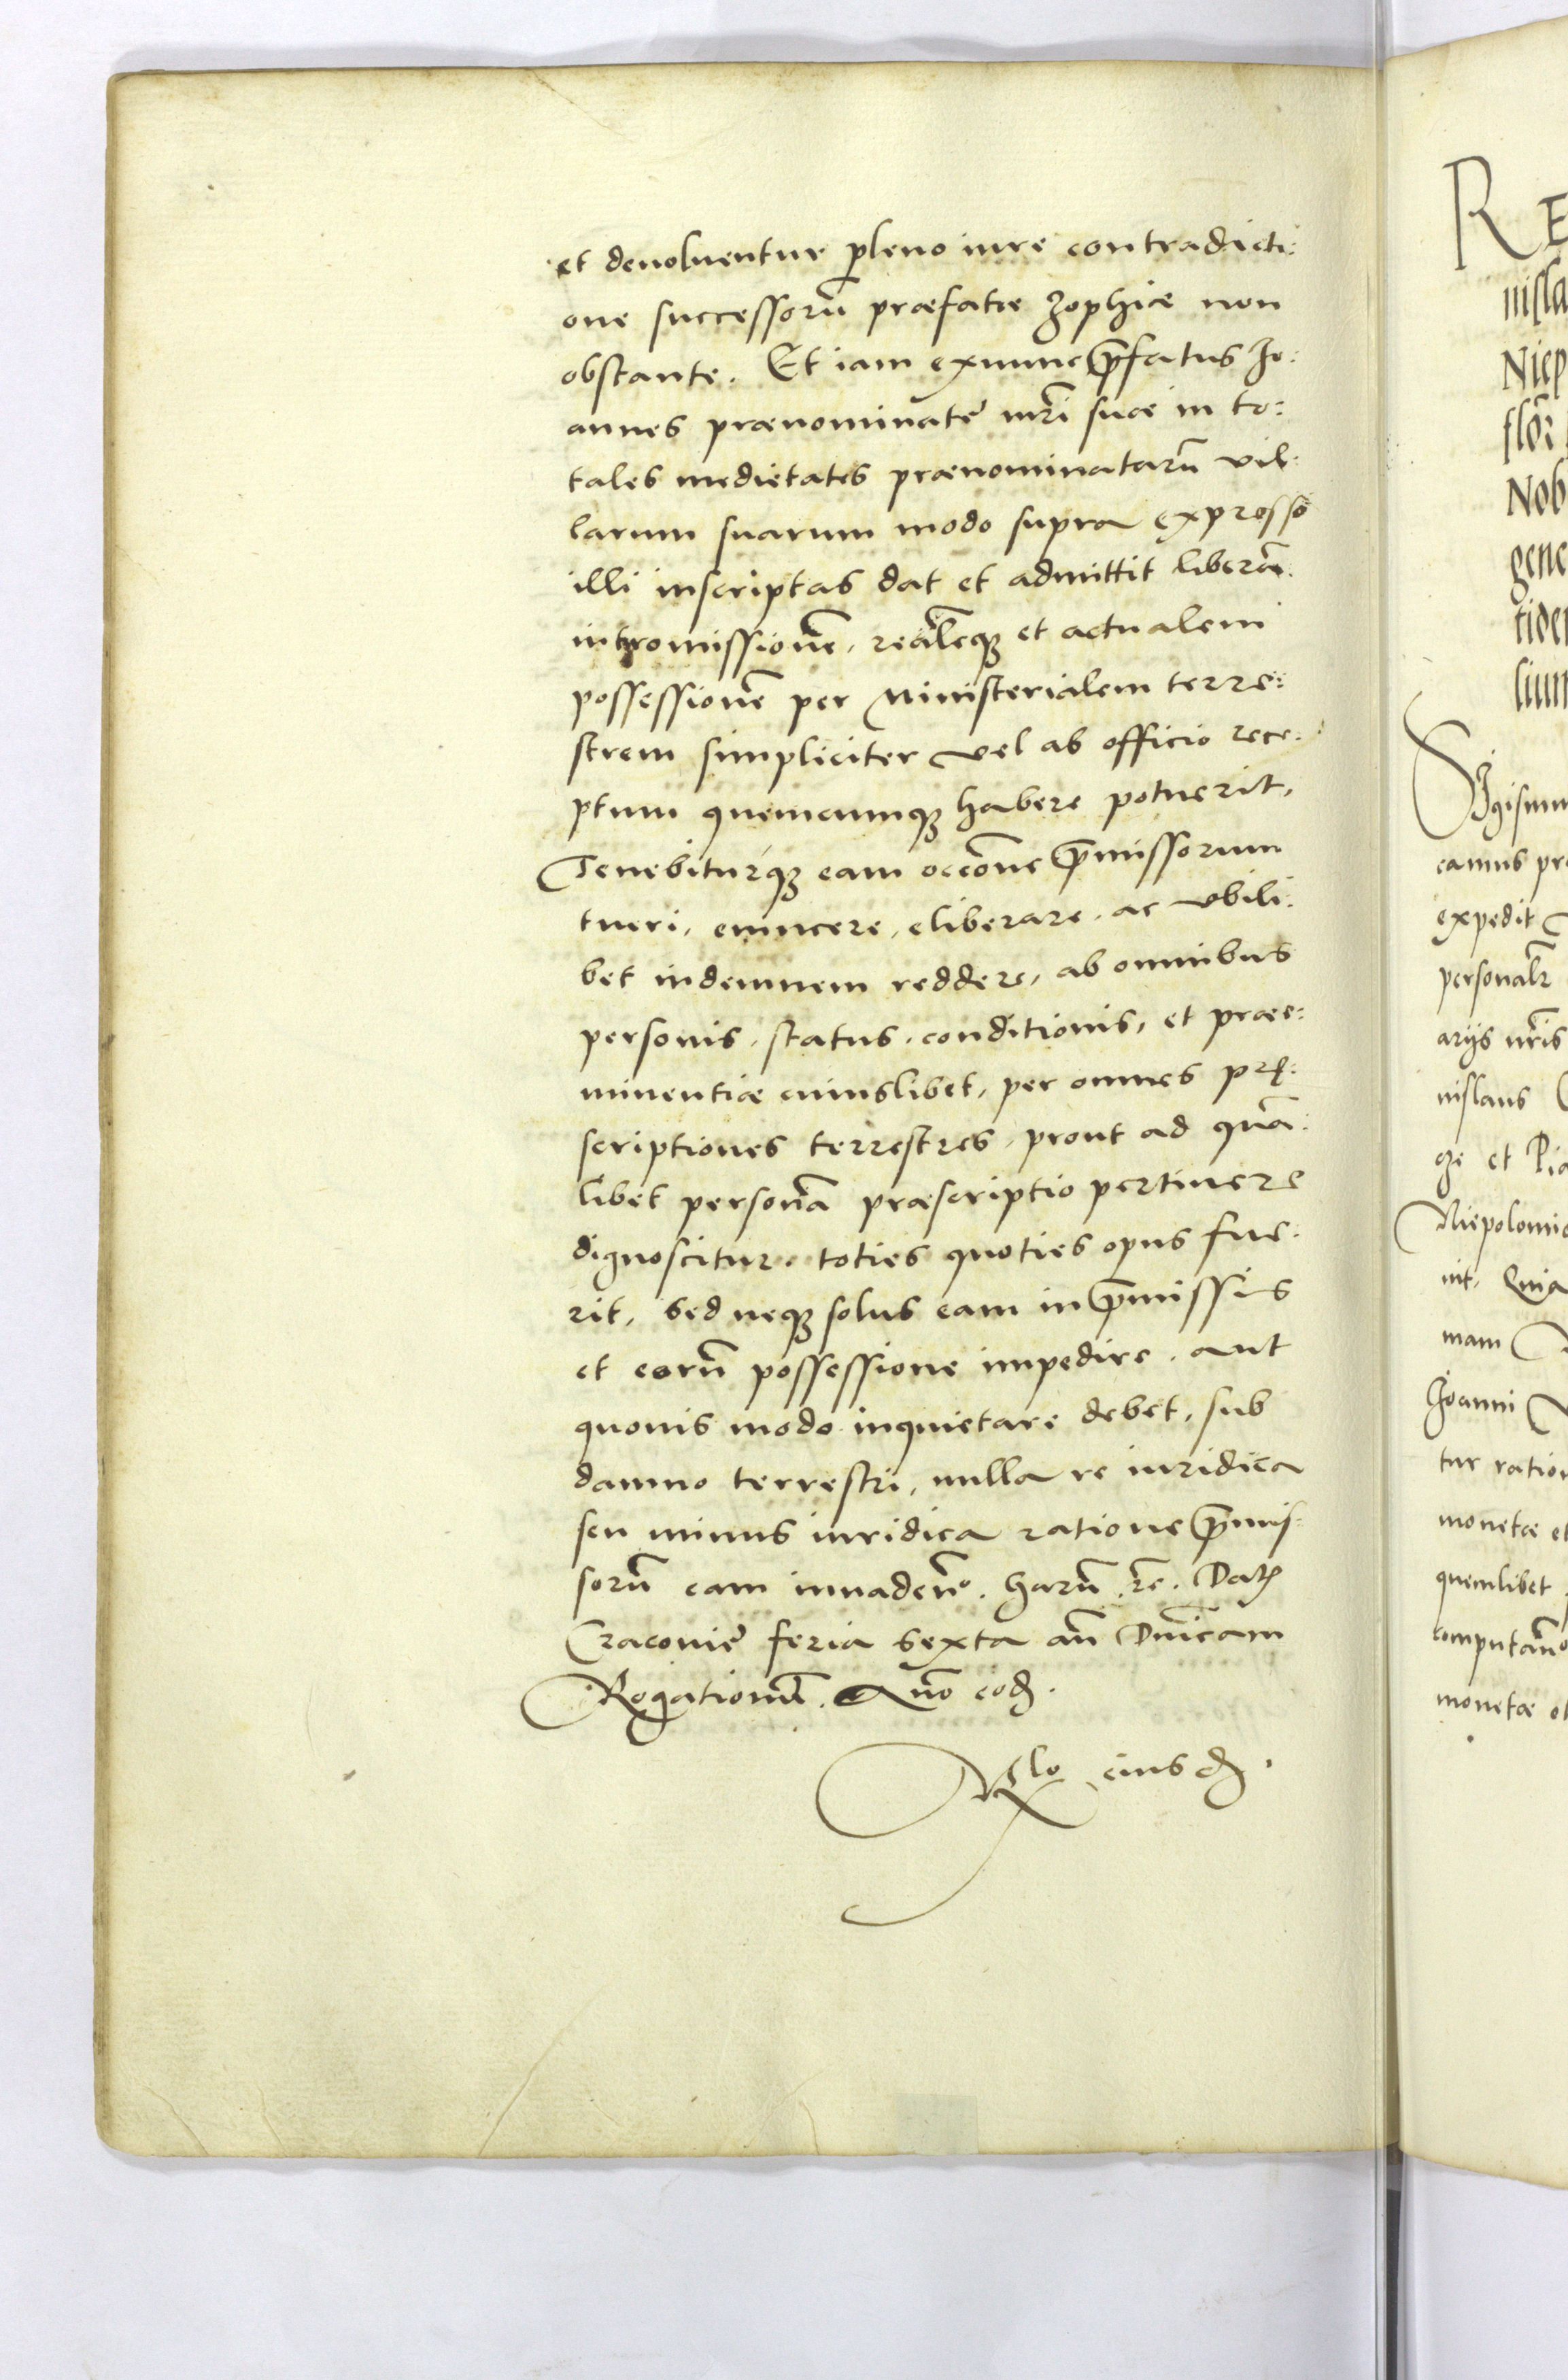 et deuoluentur pleno iure contradicti:
one successorũ præfatæ Zophiæ non
obstante. Et iam exnunc p̃fatus Jo:
annes prænominatę mr̃i suæ in to:
tales medietates prænominatarũ vil:
larum suarum modo supra expresso
illi inscriptas dat et admittit liberã
intromissionẽ, reãlẽq3 et actualem
possessionẽ per Ministerialem terre:
strem simpliciter vel ab officio rece:
ptum quemcumq3 habere potuerit,
Tenebiturq3 eam occõne p̃missorum
tueri, euincere, eliberare, ac vbili:
bet indemnem reddere, ab omnibus
personis, status, conditionis, et præe:
minentiæ cuiuslibet, per omnes pręs:
scriptiones terrestres, prout ad quã:
libet personã præscriptio pertinere
dignoscitur, toties quoties opus fue:
rit, Sed neq3 solus eam in p̃missis
et eorũ possessione impedire, aut
quouis modo inquietare debet, sub
damno terrestri, nulla re iuridica
seu minus iuridica ratione p̃mis:
sorũ eam inuadeñ. harũ r̃e. Dat
Cracouię feria Sexta añ Dñicam
Rogationũ. Anno eod.
Rlo eiusd.
RE
nisla
Niep
flor̃
Nob
gene
tide
lium
Sigismu
camus pr
expedit
personalr̃
arijs nr̃is
nislaus
et Pi
Niepolomi
uit, Quia
mam
Joanni
tur ration
monetæ et
quemlibet
computañ
monetæ